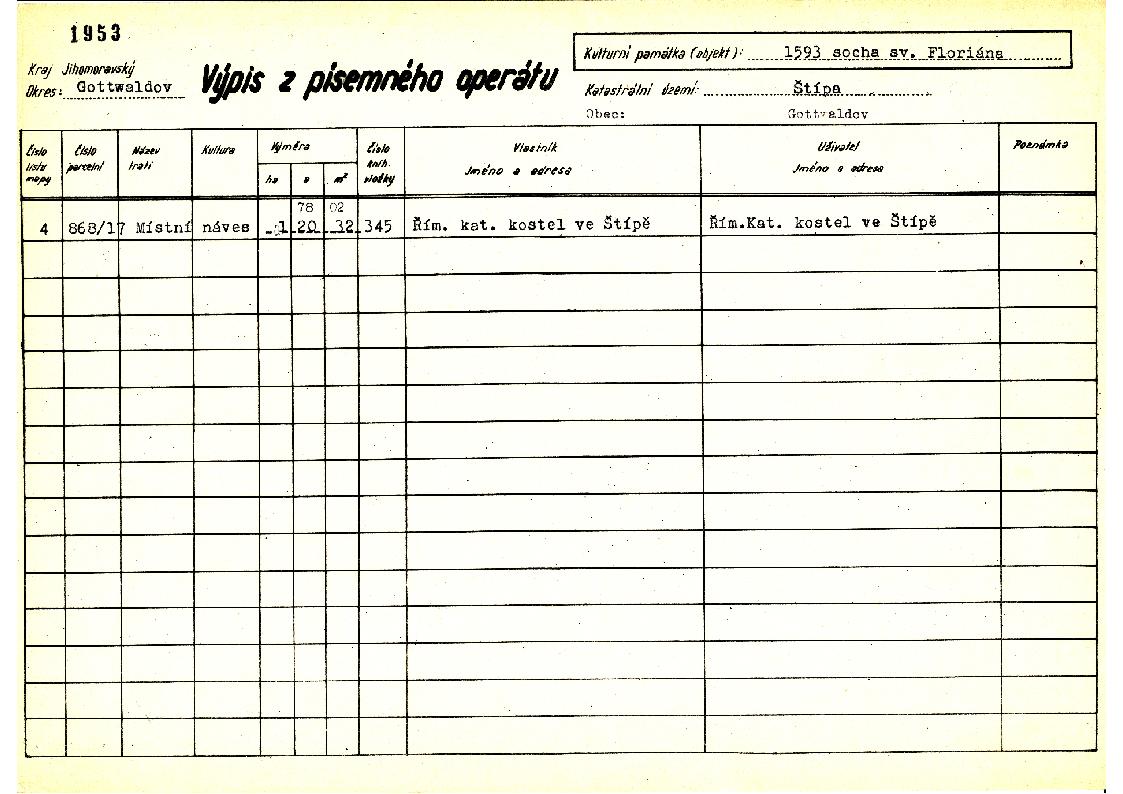 1953
Kraj Jihomoravský
Okres: Gottwaldov
Výpis z písemného operátu
Kulturní památka (objekt): 1593 socha sv. Floriána
Katastrální území: Štípa
Obec: Gottwaldov
Číslo listu mapy
Číslo parcelní
Název trati
Kultura
Výměra
ha
a
m²
Číslo knih. vložky
Vlastník
Jméno a adresa
Uživatel
Jméno a adresa
Poznámka
78 02
4 868/17 Místní náves 1 20 32 345 Řím. kat. kostel ve Štípě Řím.Kat. kostel ve Štípě